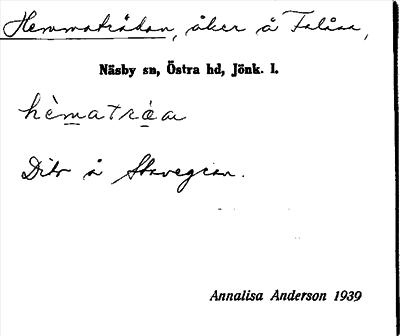 Hemmatrådan, åker å Folåsa,
Näsby sn, Östra hd, Jönk. l.
hèmatráa
Dito å Stavegian.
Annalisa Anderson 1939